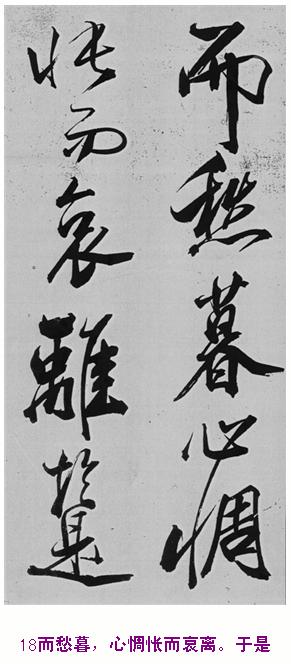 而愁暮心惆
悵而哀離於是
18而愁暮，心惆怅而哀离。于是